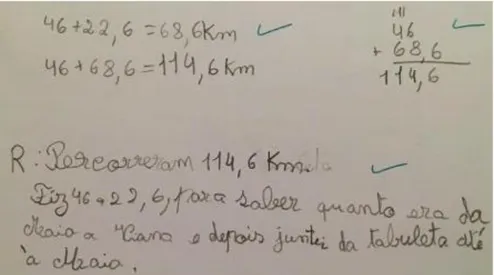 46+22,6=68,6Km
46+68,6=114,6Km
46
+ 68,6
114,6
R: Percorreram 114,6 Km.
Fiz 46+22,6, para saber quanto era da
Maia a Viana e depois juntei da tabuleta até
à Maia.